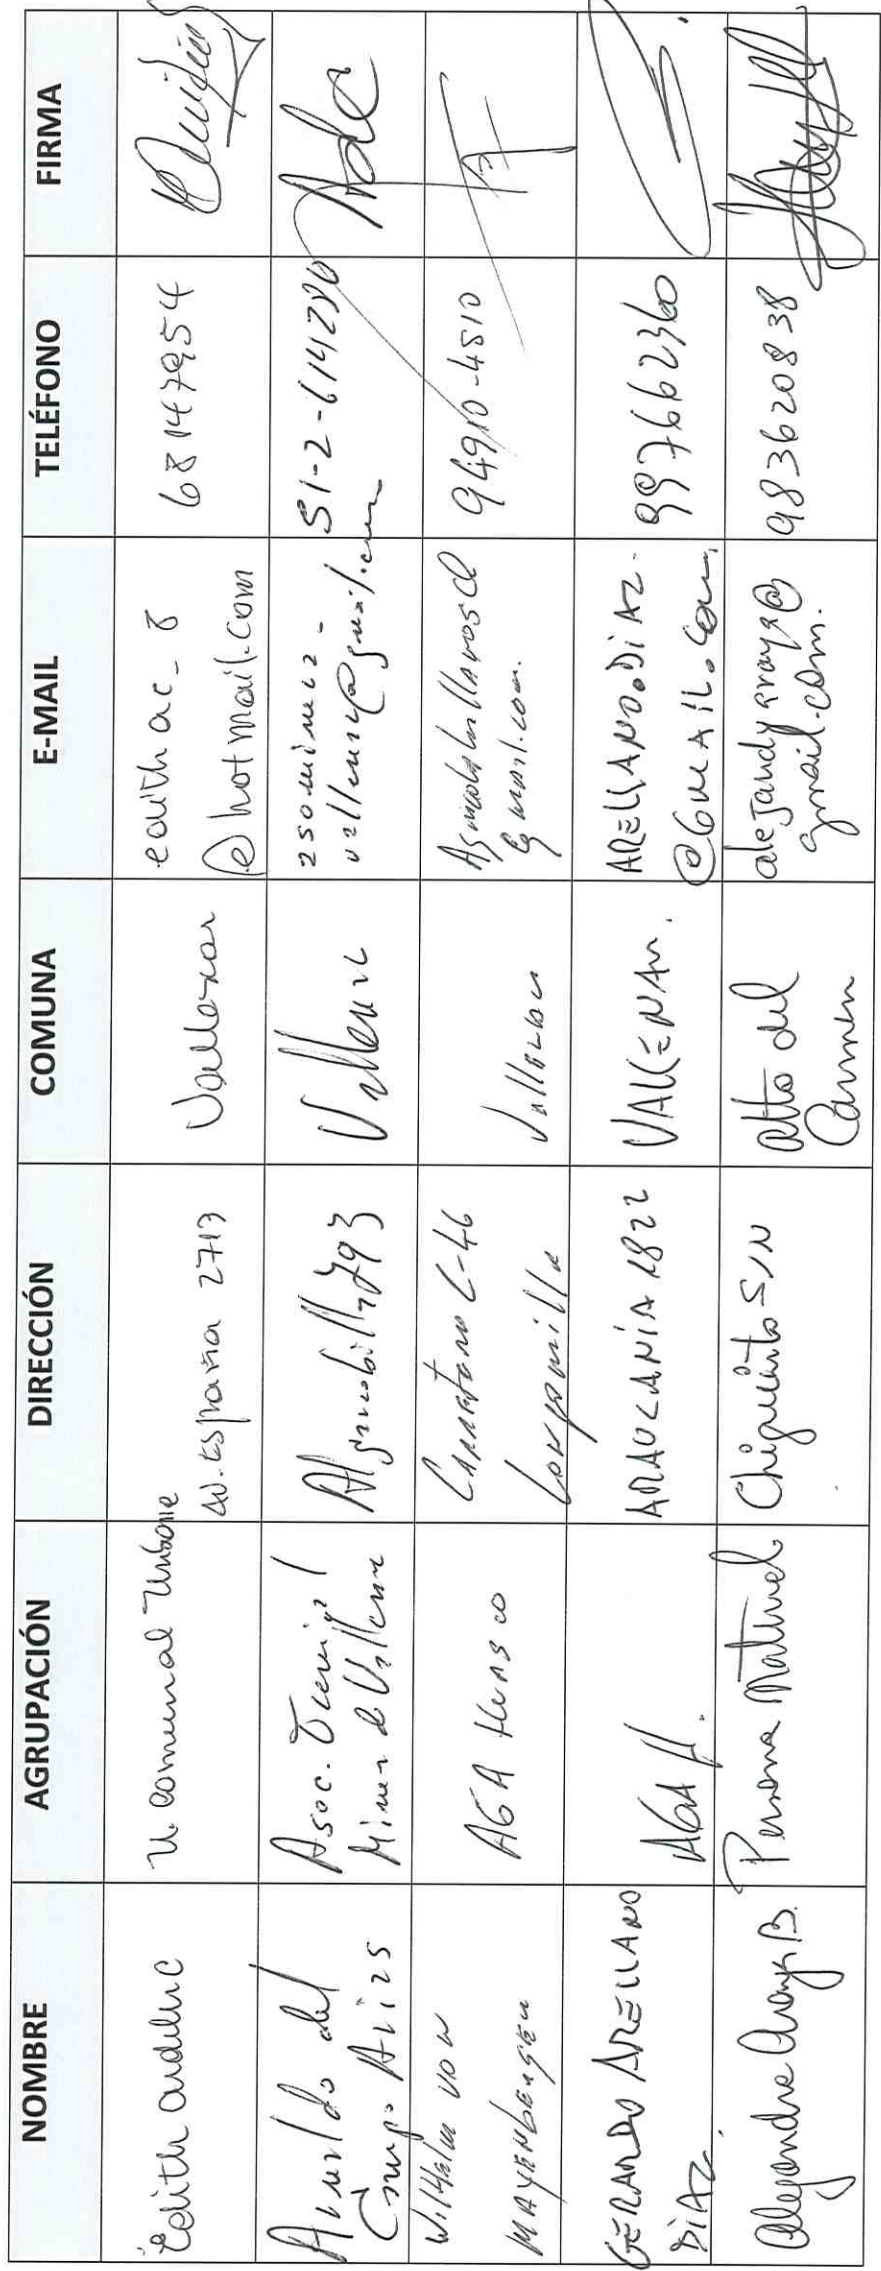 NOMBRE AGRUPACIÓN DIRECCIÓN COMUNA E-MAIL TELÉFONO FIRMA
Edith U. Comunal Urbano Av. España 2713 Vallenar edithac_8
@hotmail.com 68147954
Arnaldo del
Campo Arias Asoc. Gremial
Minera de Vallenar Algarrobilla 793 Vallenar vallenar@gmail.com 51-2-614286
Wilhelm von
Mayenberger AGA Huasco Carretera C-46
Longomilla Vallenar
gmail.com. 94910-4510
GERARDO ARELLANO
DIAZ. AGA H. ARAUCANÍA 1822 VALLENAR. ARELLANO.DIAZ.
@GMAIL.COM. 997662360
Alejandra Araya B. Persona Natural Chiguinto S/N Alto del
Carmen alejandyaraya@
gmail.com. 983620838